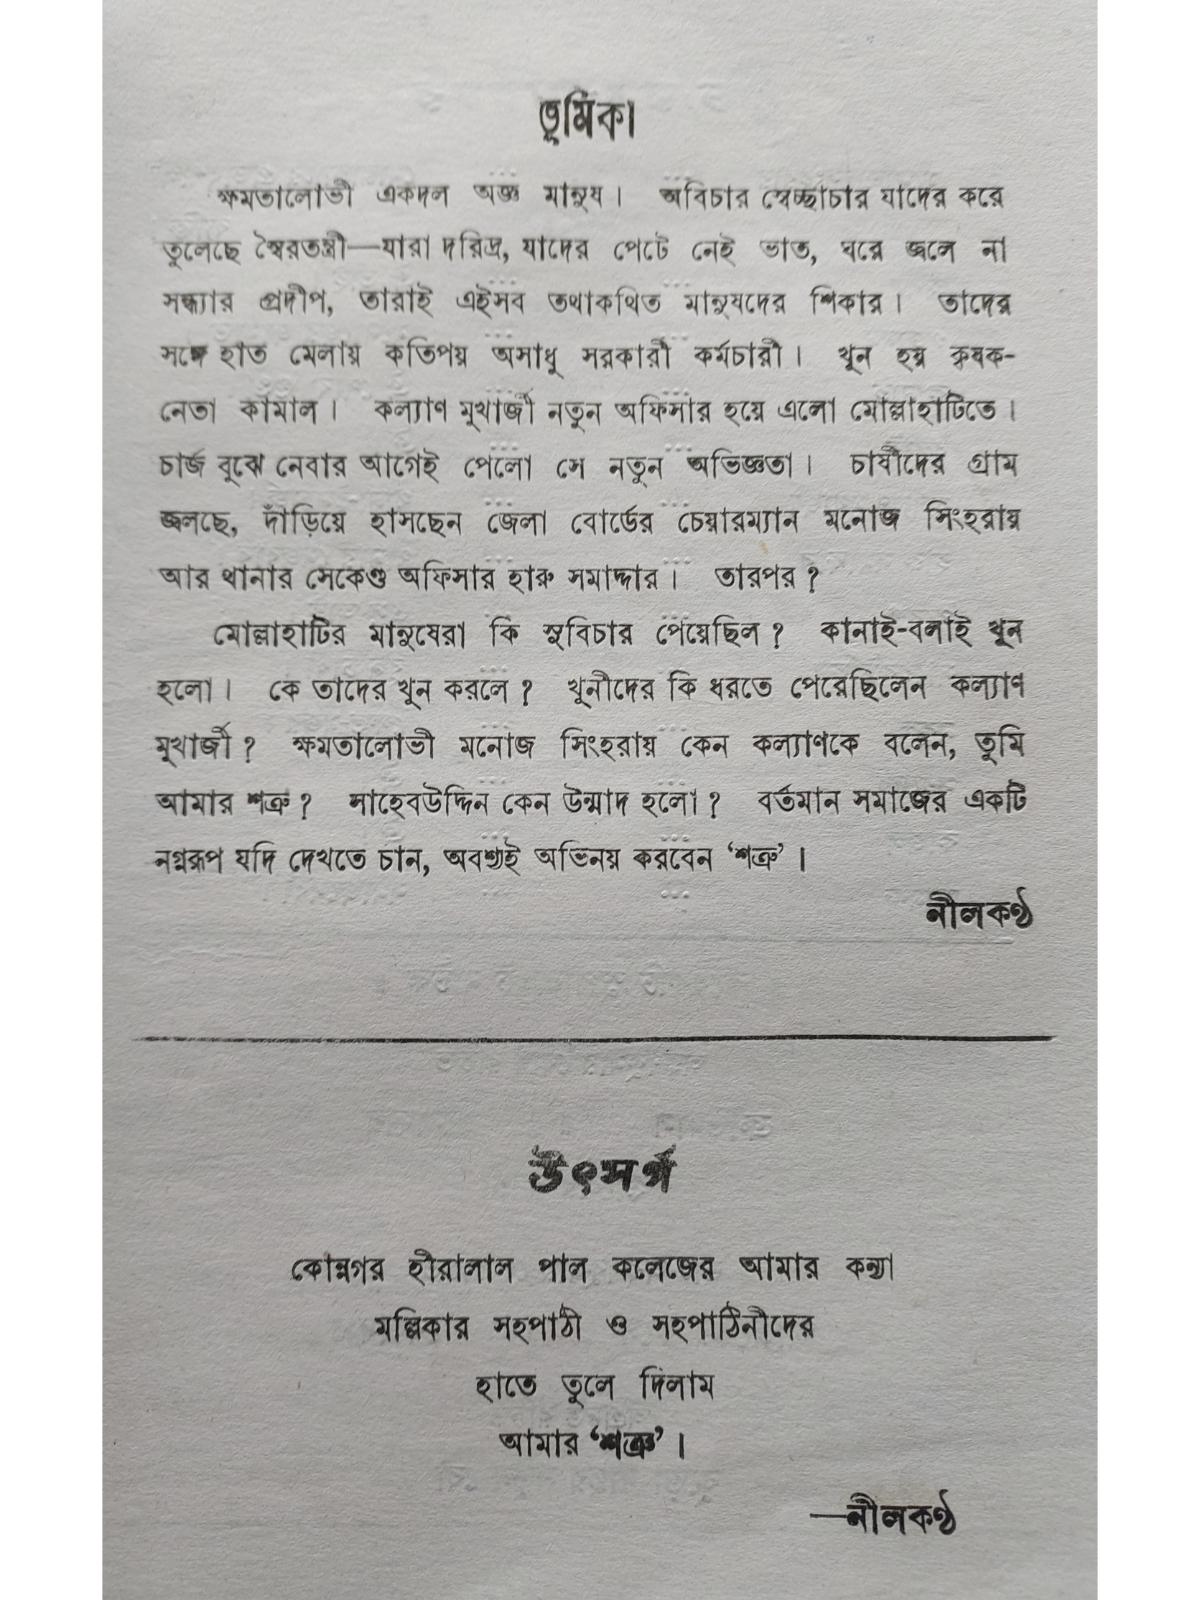 ভূমিকা
ক্ষমতালোভী একদল অজ্ঞ মানুষ। অবিচার স্বেচ্ছাচার যাদের করে
তুলেছে স্বৈরতন্ত্রী—যারা দরিদ্র, যাদের পেটে নেই ভাত, ঘরে জ্বলে না
সন্ধ্যার প্রদীপ, তারাই এইসব তথাকথিত মানুষদের শিকার। তাদের
সঙ্গে হাত মেলায় কতিপয় অসাধু সরকারী কর্মচারী। খুন হয় কৃষক-
নেতা কামাল। কল্যাণ মুখার্জী নতুন অফিসার হয়ে এলো মোল্লাহাটিতে।
চার্জ বুঝে নেবার আগেই পেলো সে নতুন অভিজ্ঞতা। চাষীদের গ্রাম
জ্বলছে, দাঁড়িয়ে হাসছেন জেলা বোর্ডের চেয়ারম্যান মনোজ সিংহরায়
আর থানার সেকেণ্ড অফিসার হারু সমাদ্দার। তারপর?
মোল্লাহাটির মানুষেরা কি সুবিচার পেয়েছিল? কানাই-বলাই খুন
হলো। কে তাদের খুন করলে? খুনীদের কি ধরতে পেরেছিলেন কল্যাণ
মুখার্জী? ক্ষমতালোভী মনোজ সিংহরায় কেন কল্যাণকে বলেন, তুমি
আমার শত্রু? সাহেবউদ্দিন কেন উন্মাদ হলো? বর্তমান সমাজের একটি
নগ্নরূপ যদি দেখতে চান, অবশ্যই অভিনয় করবেন ‘শত্রু’।
নীলকণ্ঠ
উৎসর্গ
কোন্নগর হীরালাল পাল কলেজের আমার কন্যা
মল্লিকার সহপাঠী ও সহপাঠিনীদের
হাতে তুলে দিলাম
আমার ‘শত্রু’।
—নীলকণ্ঠ